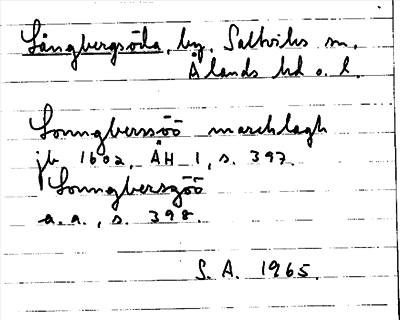 Långbergsöda, by, Saltviks sn,
Ålands hd o. l.
Lonngberssöö marchlagh
jb 1602, ÅH 1, s. 397.
Lonngbersgöö
a.a., s. 398.
S. A. 1965.